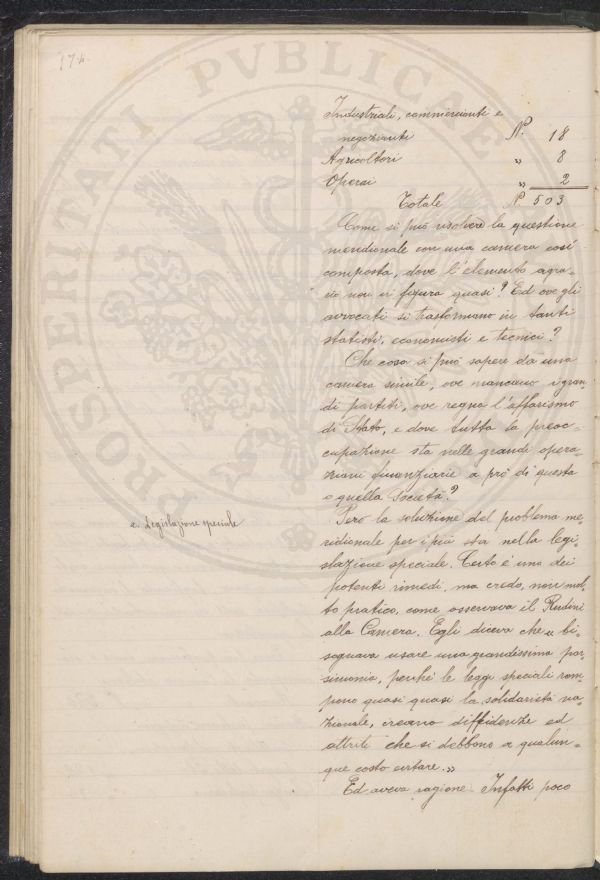 174.
PROSPERITATI PVBLICAE
Industriali, commercianti e
negozianti N.° 18
Agricoltori „ 8
Operai „ 2
Totale N. 503
Come si può risolvere la questione
meridionale con una camera così
composta, dove l'elemento agra-
rio non vi figura quasi? Ed ove gli
avvocati si trasformano in tanti
statisti, economisti e tecnici?
Che cosa si può sapere da una
camera simile, ove mancano i gran-
di partiti, ove regna l'affarismo
di Stato, e dove tutta la preoc-
cupazione sta nelle grandi opera-
zioni finanziarie a prò di questa
o quella Società?
a. Legislazione speciale
Però la soluzione del problema me-
ridionale per i più sta nella legi-
slazione speciale. Certo è uno dei
potenti rimedi, ma credo, non mol-
to pratico, come osservava il Rudinì
alla Camera. Egli diceva che „ bi-
sognava usare una grandissima par-
simonia, perchè le leggi speciali rom-
pono quasi quasi la solidarietà na-
zionale, creano diffidenze ed
attriti che si debbono a qualun-
que costo evitare. „
Ed aveva ragione. Infatti poco